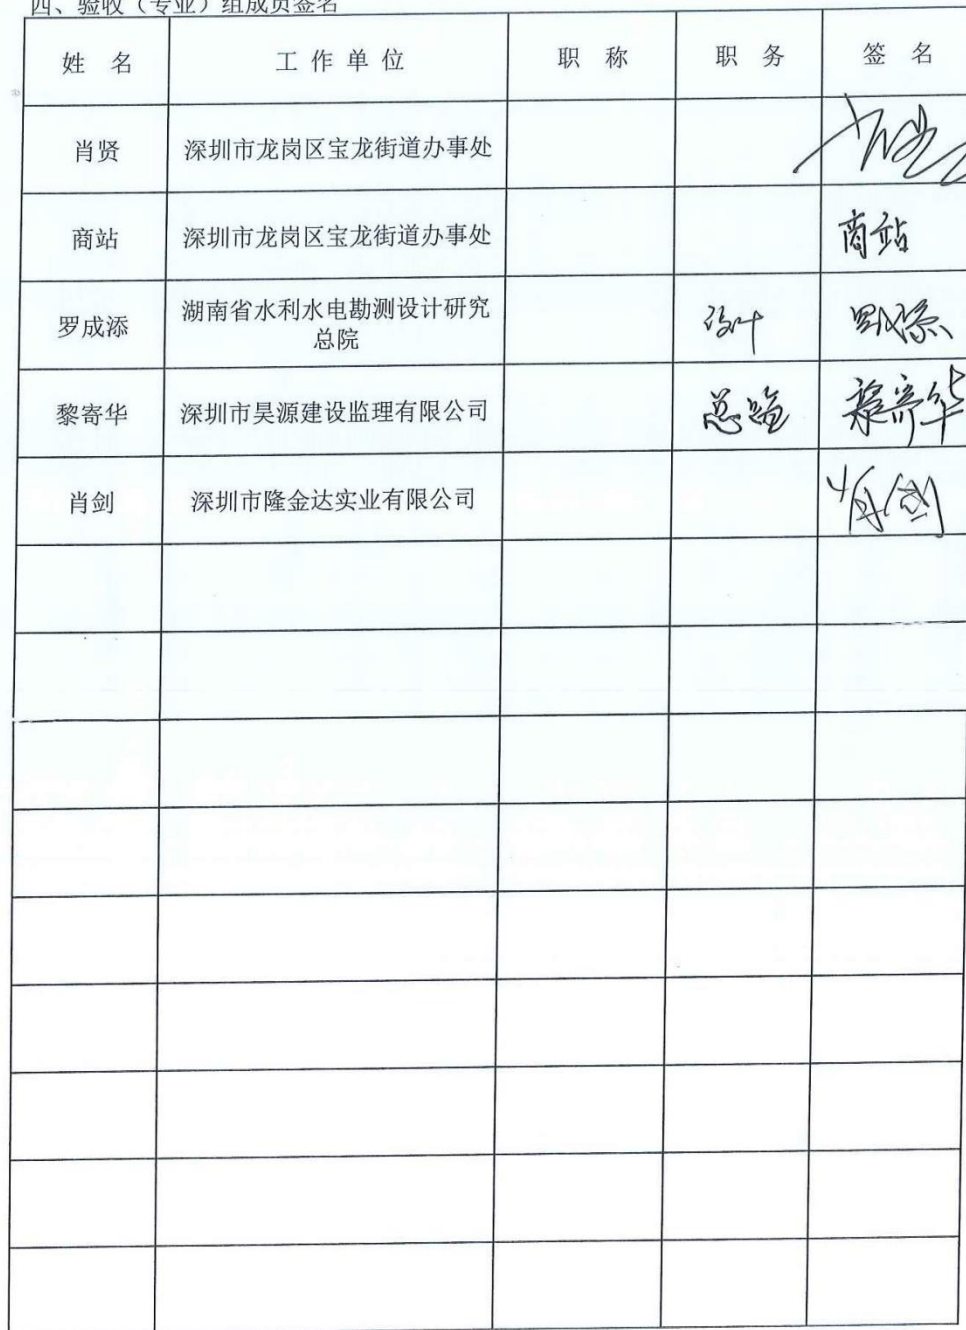 四、验收（专业）组成员签名
姓 名 工 作 单 位 职 称 职 务 签 名
肖贤 深圳市龙岗区宝龙街道办事处
商站 深圳市龙岗区宝龙街道办事处 商站
罗成添 湖南省水利水电勘测设计研究 设计 罗成添
总院
黎寄华 深圳市昊源建设监理有限公司 总监 黎寄华
肖剑 深圳市隆金达实业有限公司 肖剑